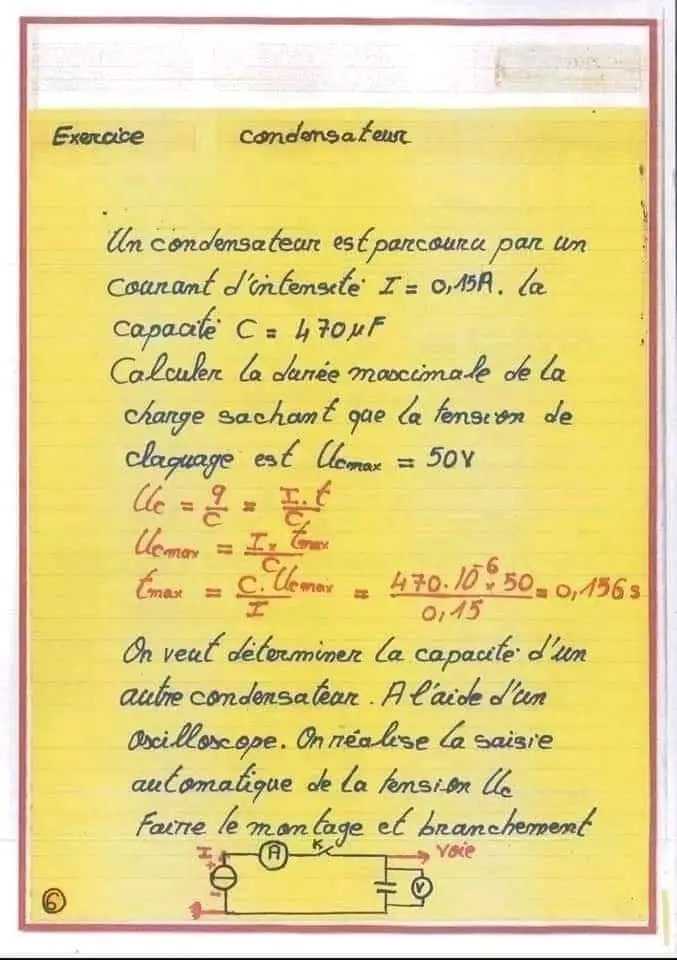 Exercice condensateur
Un condensateur est parcouru par un
courant d'intensité I = 0,15A. La
capacité C = 470µF
Calculer la durée maximale de la
charge sachant que la tension de
claquage est Ucmax = 50V
Uc = q/C = I.t/C
Ucmax = I x tmax/C
tmax = C.Ucmax/I = 470.10⁻⁶ x 50/0,15 = 0,156s
On veut déterminer la capacité d'un
autre condensateur. A l'aide d'un
oscilloscope. On réalise la saisie
automatique de la tension Uc
Faire le montage et branchement
I A K voie
+
- V
6